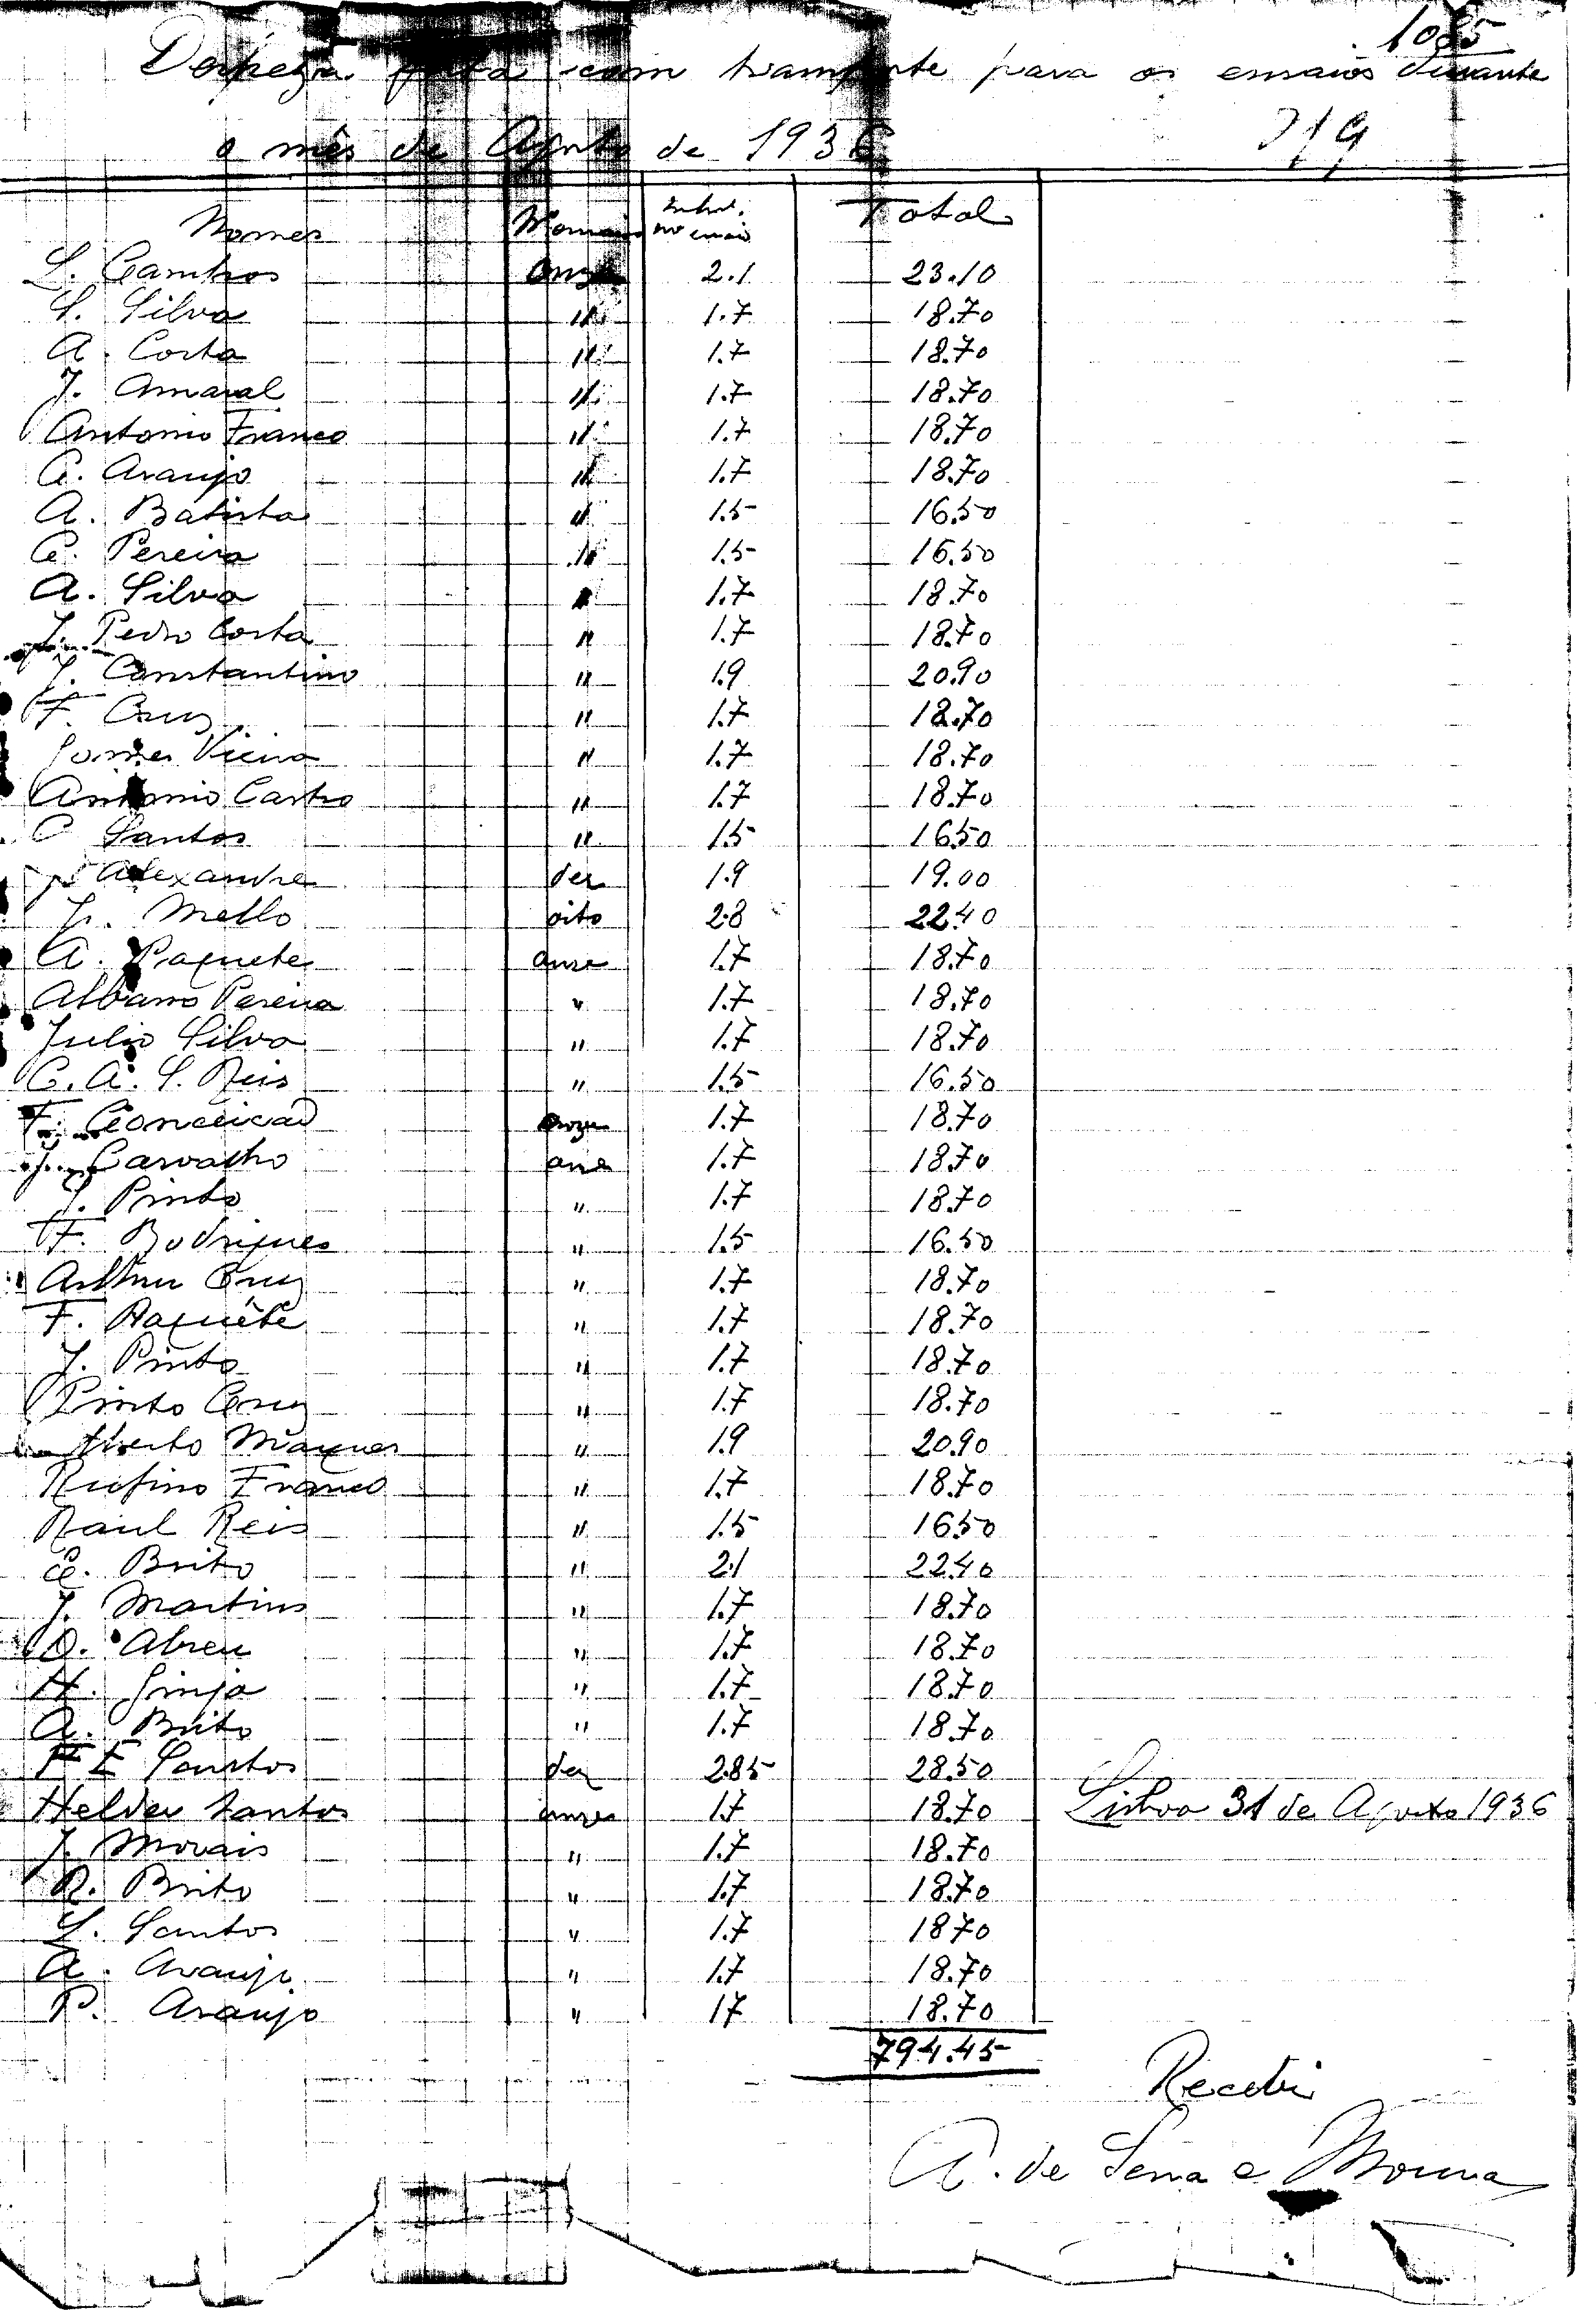 1085
Despeza feita com transporte para os ensaios durante
o mês de Agosto de 1936
Nomes Total
L. Cambros onze 2.1 23.10
S. Silva " 1.7 18.70
A. Costa " 1.7 18.70
J. Amaral " 1.7 18.70
Antonio Franco " 1.7 18.70
C. Araujo " 1.7 18.70
A. Batista " 1.5 16.50
C. Pereira " 1.5 16.50
A. Silva " 1.7 18.70
J. Pedro Costa " 1.7 18.70
J. Constantino " 1.9 20.90
F. Cruz " 1.7 18.70
Gomes Vieira " 1.7 18.70
Antonio Castro " 1.7 18.70
C Santos " 1.5 16.50
Alexandre dez 1.9 19.00
J. Mello oito 2.8 22.40
A. Paquete onze 1.7 18.70
Albano Pereira " 1.7 18.70
Julio Silva " 1.7 18.70
C. A. S. Reis " 1.5 16.50
F. Conceicão onze 1.7 18.70
J. Carvalho onze 1.7 18.70
J. Pinto " 1.7 18.70
F. Rodrigues " 1.5 16.50
Arthur Cruz " 1.7 18.70
F. Paquête " 1.7 18.70
J. Pinto " 1.7 18.70
Pinto Cruz " 1.7 18.70
Alberto Marques " 1.9 20.90
Rufino Franco " 1.7 18.70
Raul Reis " 1.5 16.50
C. Brito " 2.1 22.40
J. Martins " 1.7 18.70
O. Abreu " 1.7 18.70
H. Ginja " 1.7 18.70
A. Brito " 1.7 18.70
F E Santos dez 2.85 28.50
Helder Santos onze 1.7 18.70 Lisboa 31 de Agosto 1936
J. Morais " 1.7 18.70
R. Brito " 1.7 18.70
L. Santos " 1.7 18.70
A. Araujo " 1.7 18.70
P. Araujo " 17 18.70
794.45
Recebi
A. de Sena e Moura